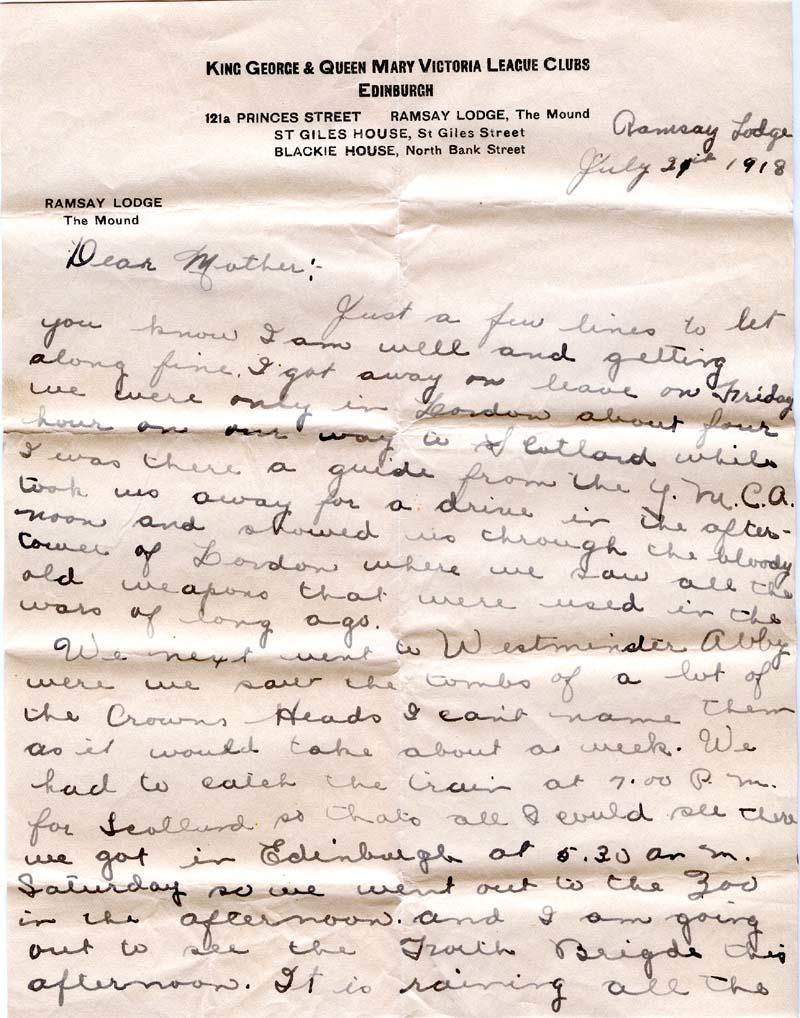 KING GEORGE & QUEEN MARY VICTORIA LEAGUE CLUBS
EDINBURGH
121a PRINCES STREET RAMSAY LODGE, The Mound
ST GILES HOUSE, St Giles Street
BLACKIE HOUSE, North Bank Street
Ramsay Lodge
July 21st 1918
RAMSAY LODGE
The Mound
Dear Mother:-
Just a few lines to let
you know I am well and getting
along fine. I got away on leave on Friday
we were only in London about four
hour on our way to Scotland while
I was there a guide from the Y.M.C.A.
took us away for a drive in the after-
noon and showed us through the bloody
tower of London where we saw all the
old weapons that were used in the
wars of long ago.
We next went to Westminder Abby
were we saw the tombs of a lot of
the Crowns Heads I can't name them
as it would take about a week. We
had to catch the train at 7.00 P.M.
for Scotland so thats all I could see there
we got in Edinburgh at 5.30 am.
Saturday so we went out to the Zoo
in the afternoon. and I am going
out to see the Brigde this
afternoon. It is raining all the